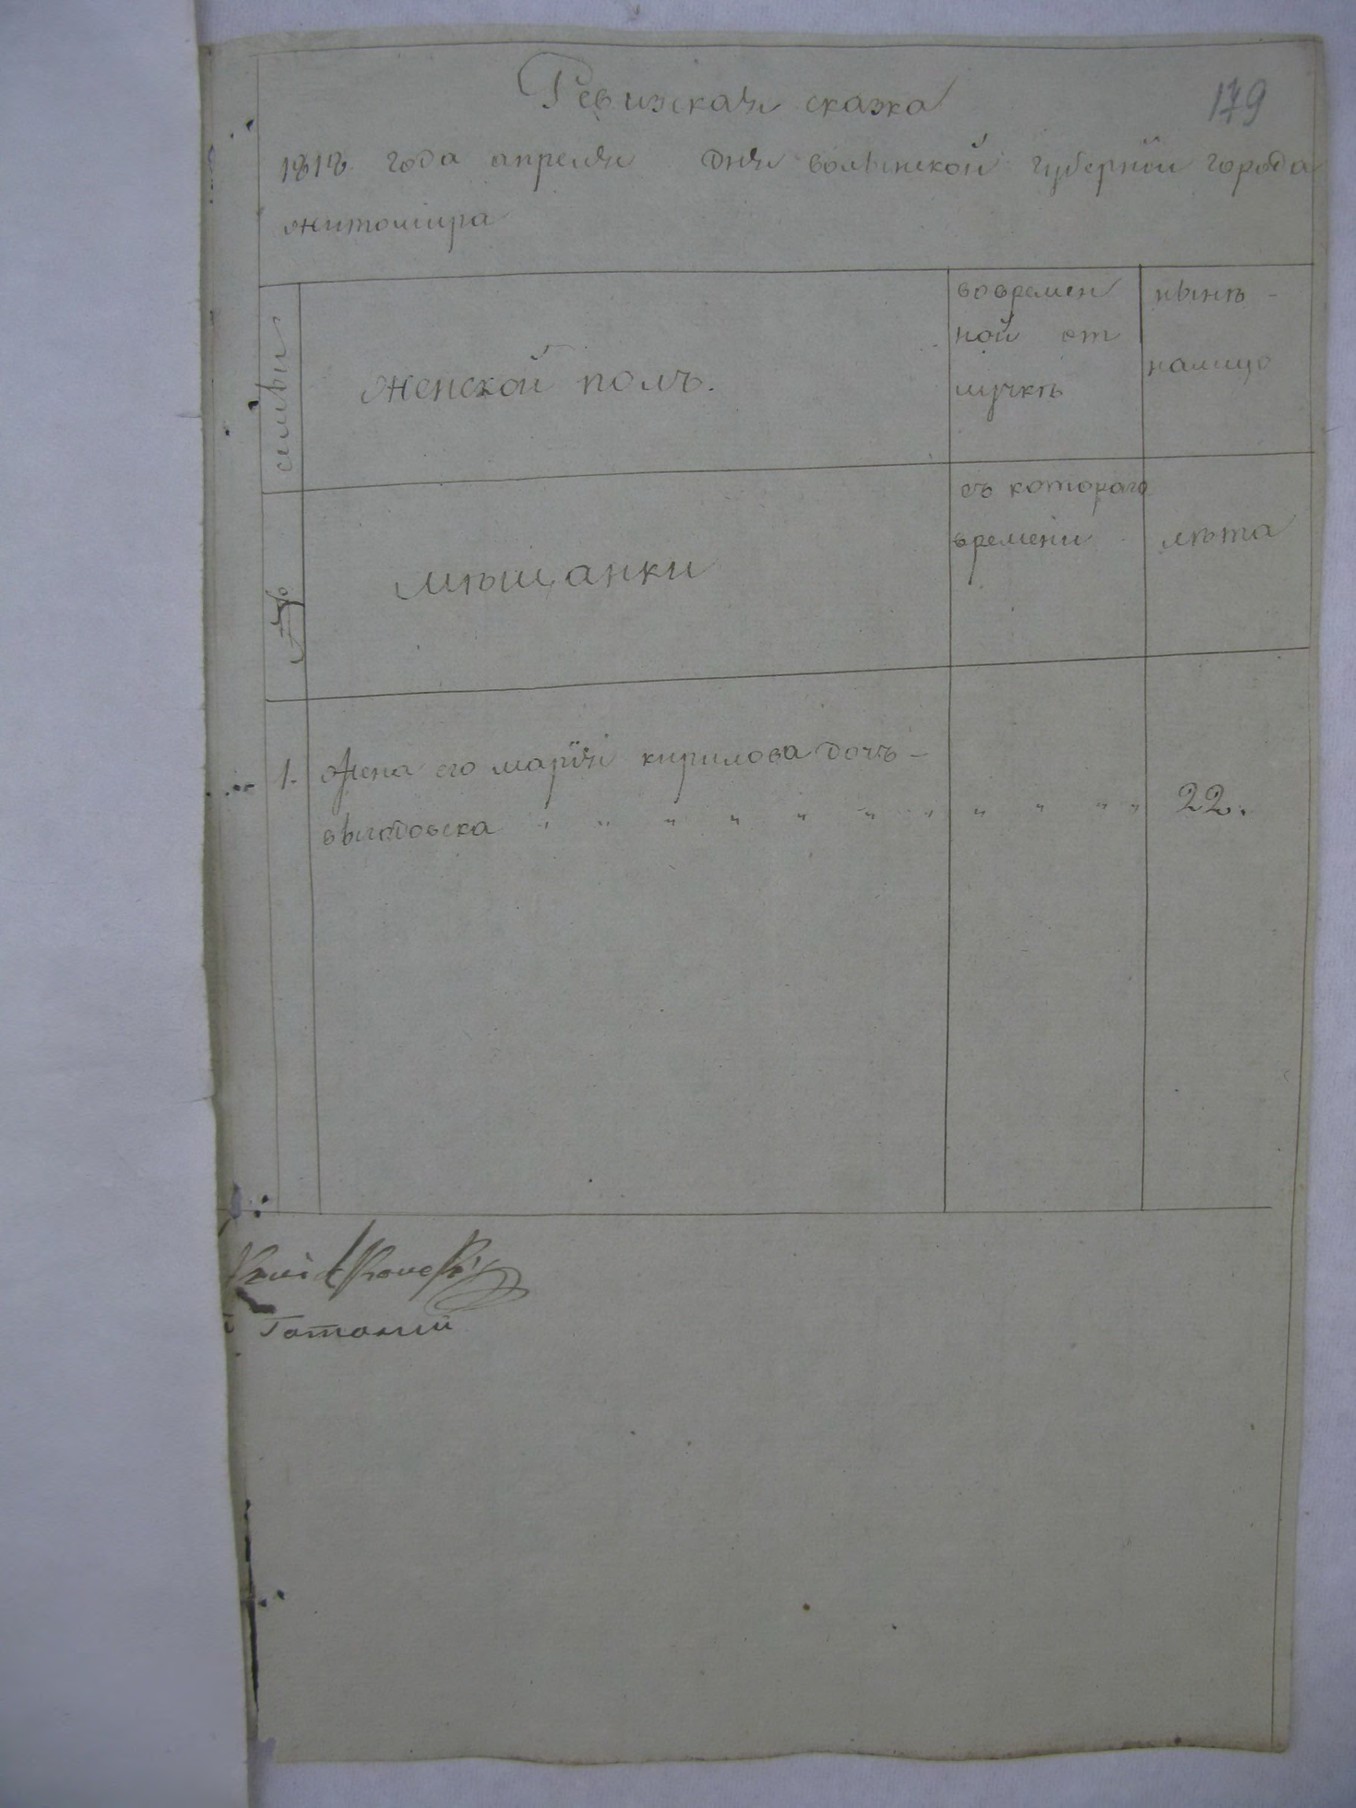 Ревизская сказка
179
1818 года апреля дня волынской губернїи города
житомира
семьи
женской полъ.
вовремен
ной от
лучкѣ
нынѣ -
налицо
№
мѣщанки
съ котораго
времени
лѣта
1. Жена его марїя кирилова дочь -
22.